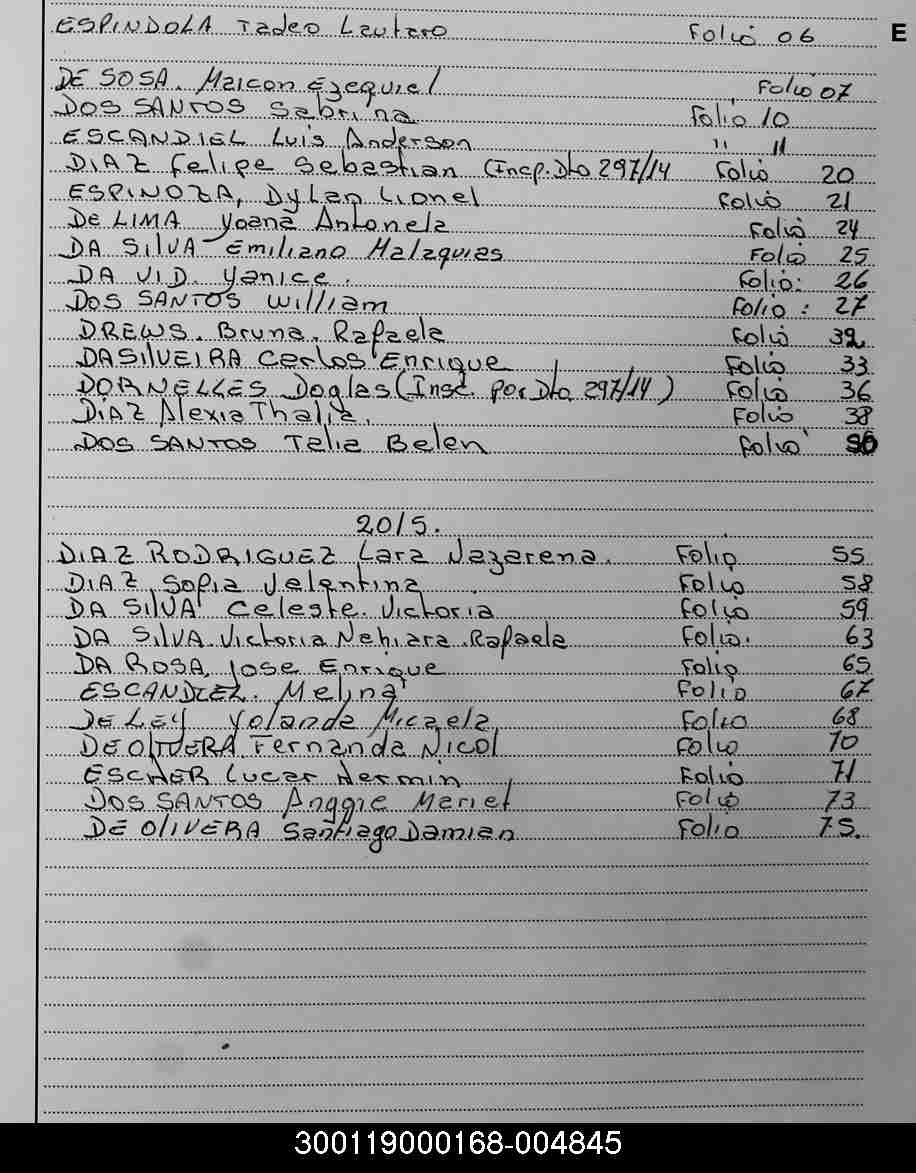 ESPINDOLA Tadeo Lautaro Folio 06 E
DE SOSA. Maicon Ezequiel Folio 07
DOS SANTOS Sabrina Folio 10
ESCANDIEL Luis Anderson " 11
DIAZ Felipe Sebastian (Insp. Dto 297/14 Folio 20
ESPINOZA, Dylan Lionel Folio 21
De LIMA Yoana Antonela Folio 24
DA SILVA Emiliano Malaquias Folio 25
DA VID. Yanice. Folio: 26
DOS SANTOS William Folio: 27
DREWS. Bruna. Rafaela Folio 32
DASILVEIRA Carlos Enrique Folio 33
DORNELLES Doglas (Insc. por Dto 297/14) Folio 36
DIAZ Alexia Thalia. Folio 38
DOS SANTOS Talia Belen Folio
2015.
DIAZ RODRIGUEZ Lara Nazarena. Folio 55
DIAZ Sofia Valentina Folio 58
DA SILVA Celeste. Victoria Folio 59
DA SILVA. Victoria Nehiara. Rafaela Folio. 63
DA ROSA, Jose Enrique Folio 65
ESCANDIEL. Melina Folio 67
DE LEY Yolanda Micaela Folio 68
DE OLIVERA Fernanda Nicol Folio 70
ESCHER Lucas Hermin Folio 71
DOS SANTOS Anggie Mariel Folio 73
DE OLIVERA Santiago Damian Folio 75.
300119000168-004845